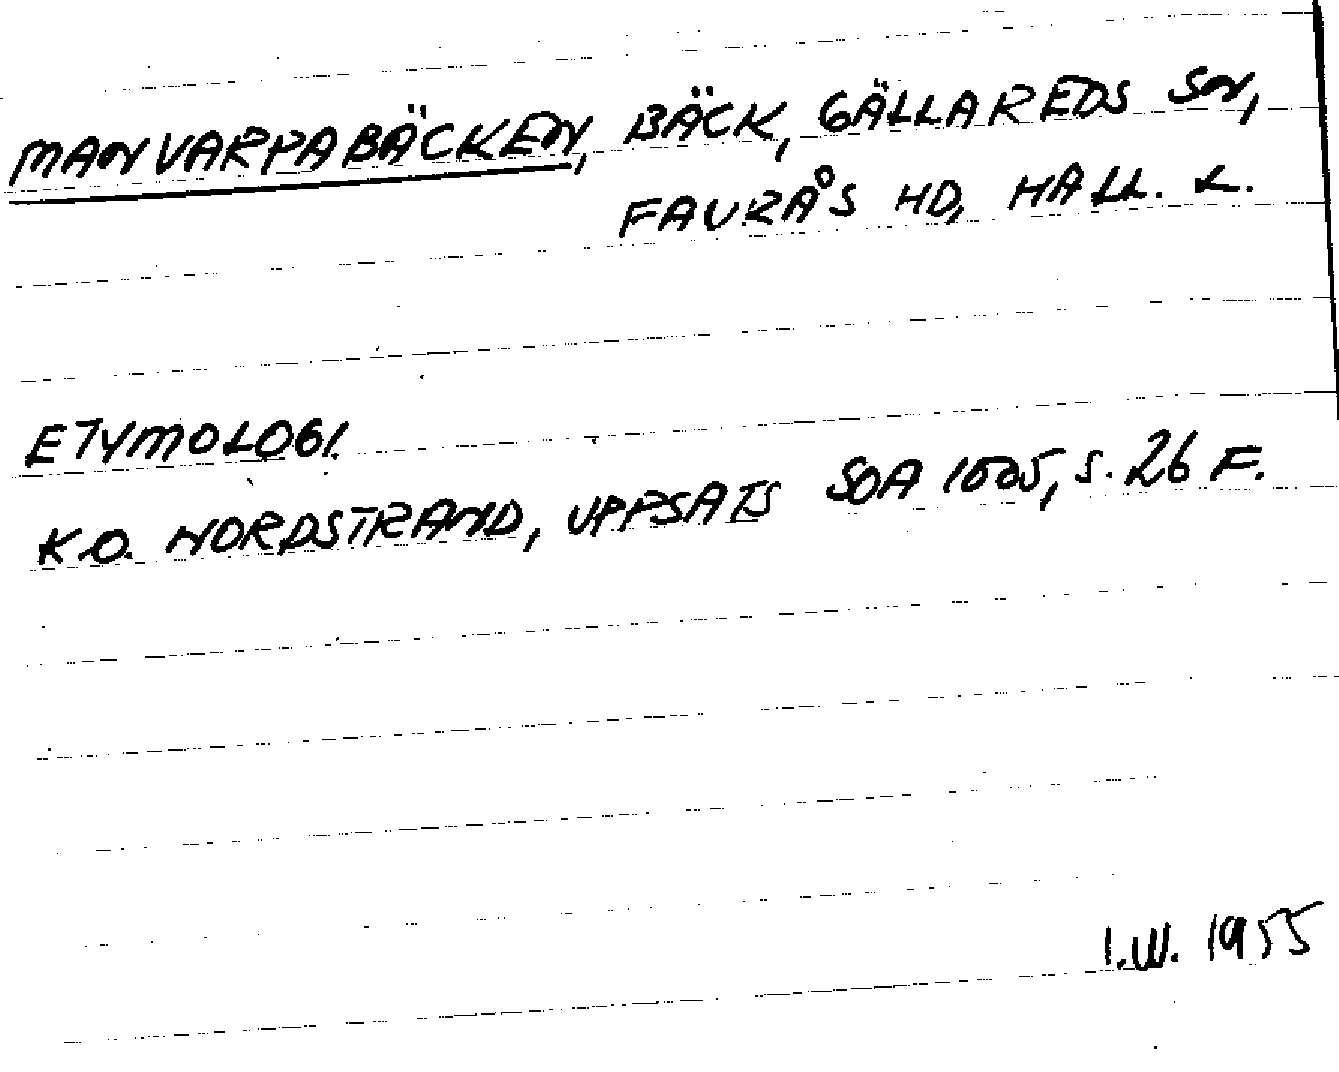 MANVARPABÄCKEN, BÄCK, GÄLLAREDS SN,
FAURÅS HD, HALL. L.
ETYMOLOGI.
K.O. NORDSTRAND, UPPSATS SOA 1505, S. 26 F.
I.W. 1955